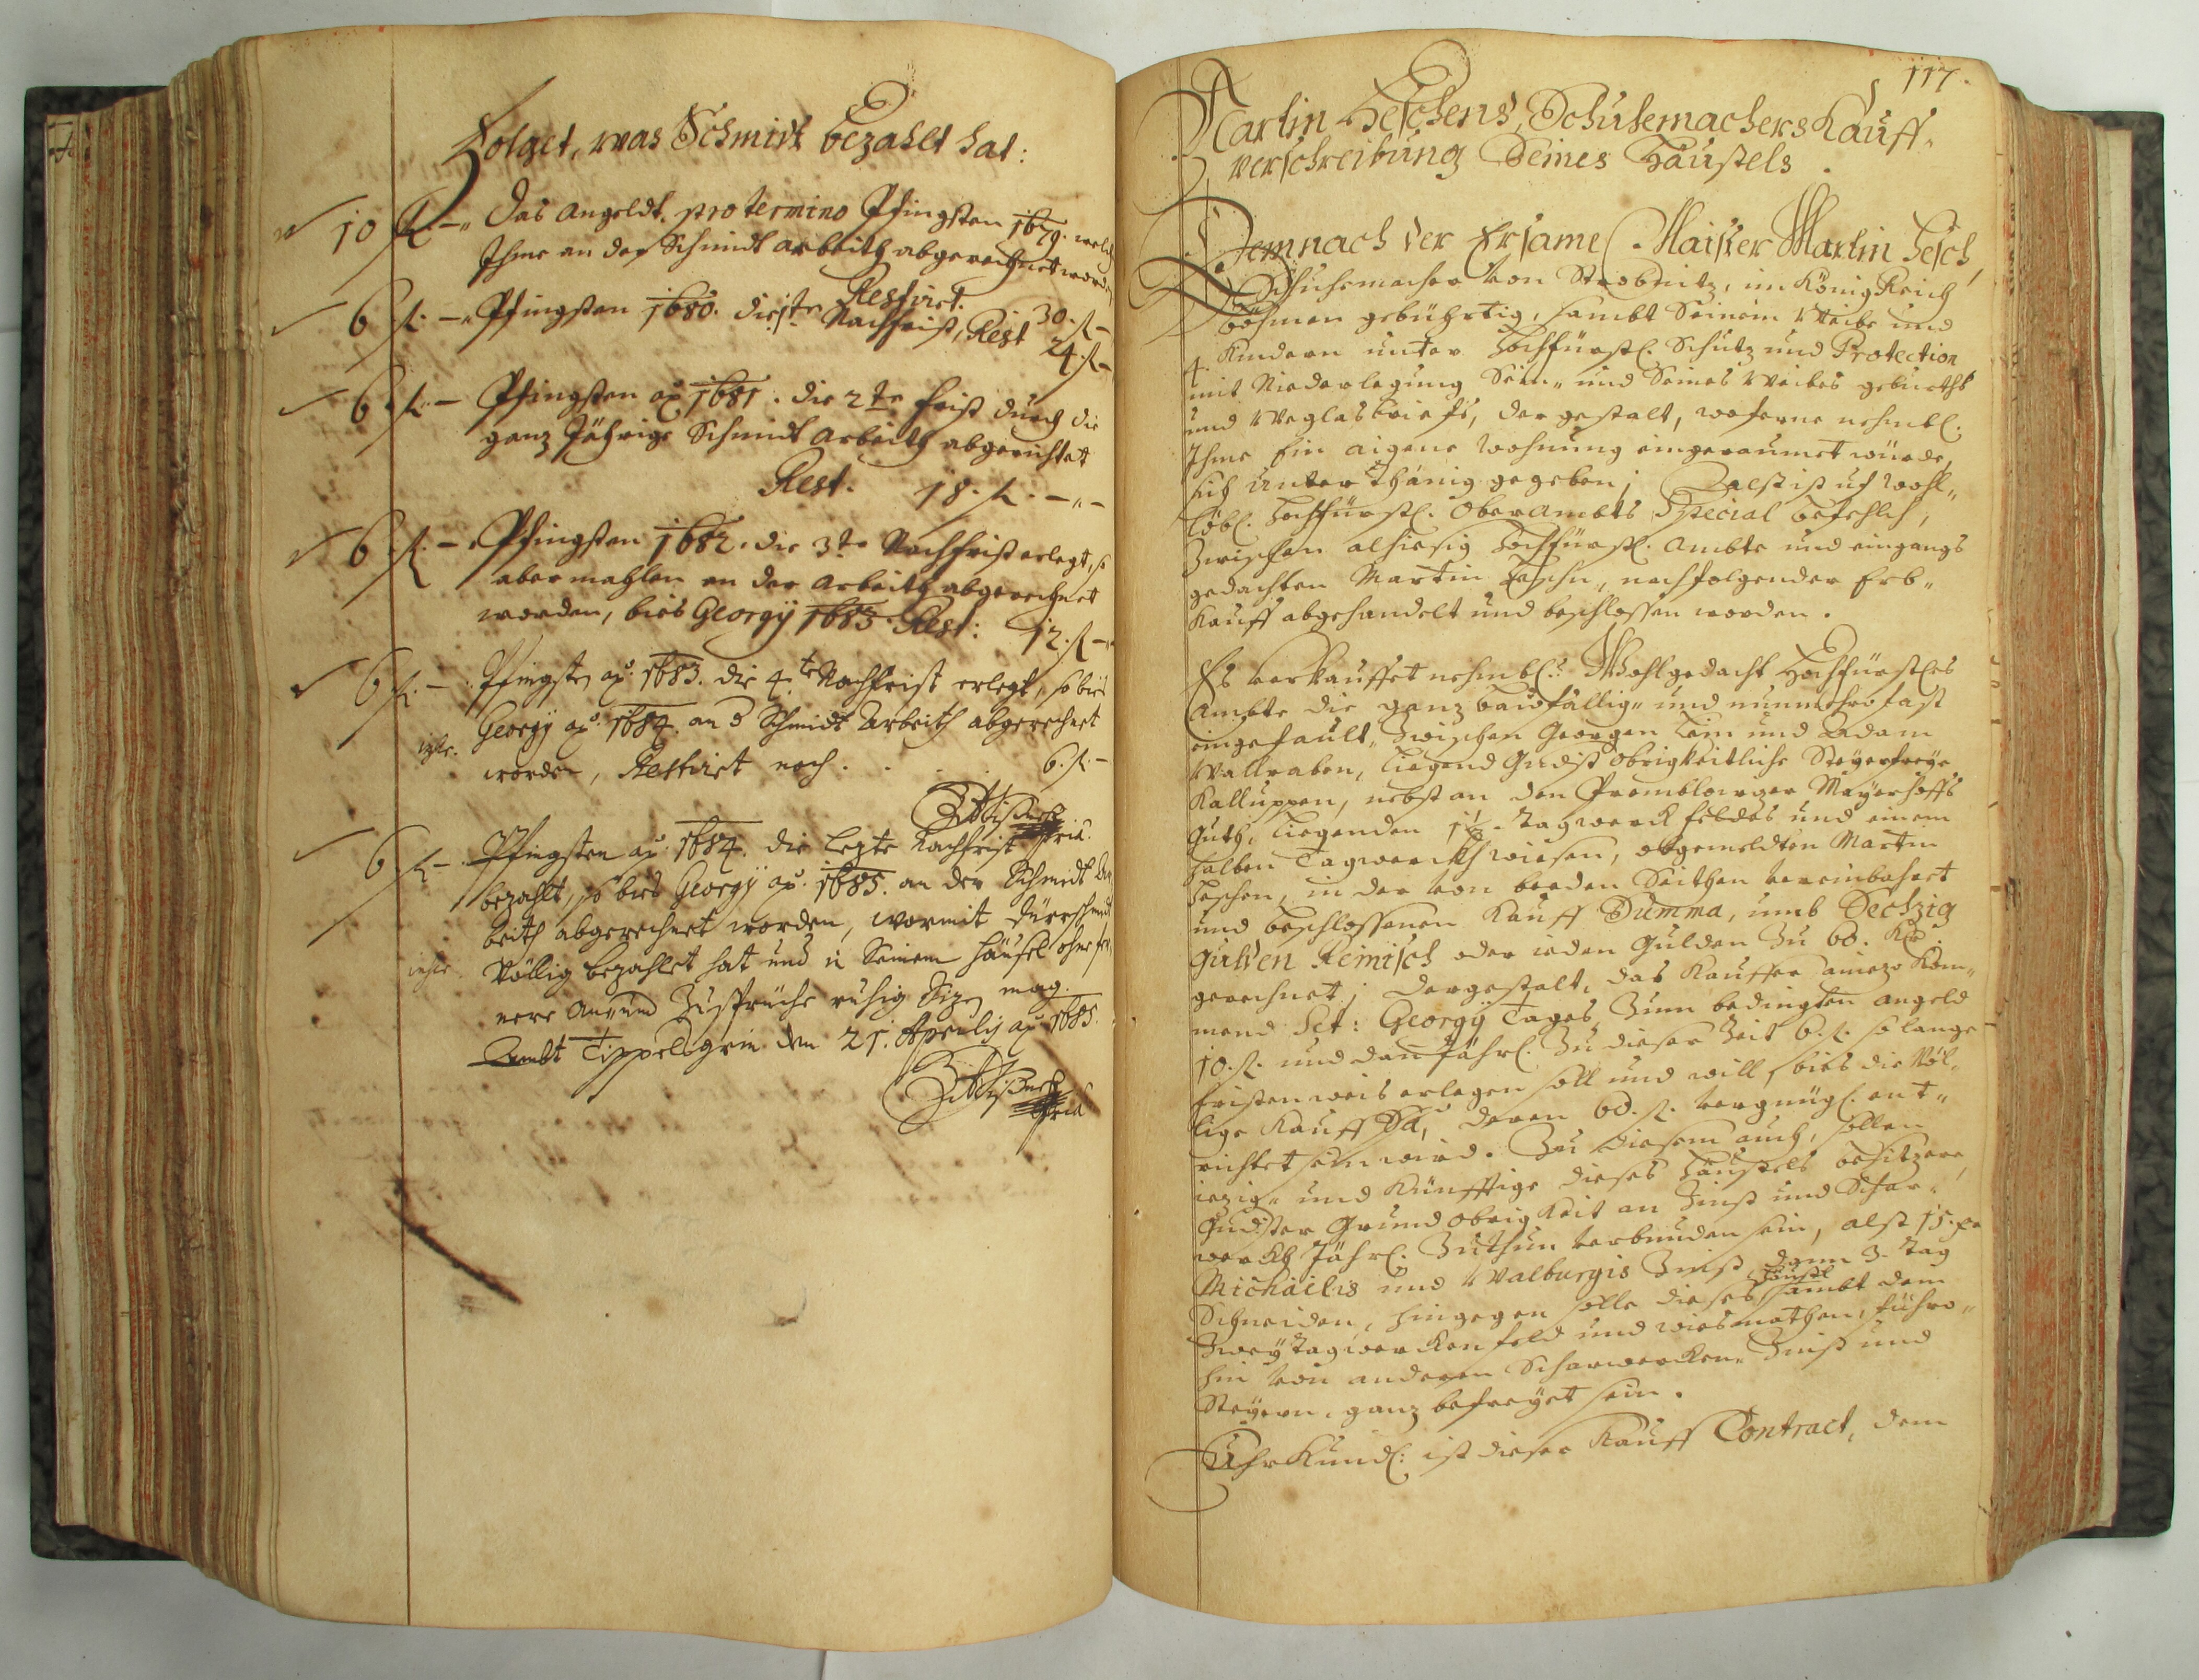 Folget, was Schmidt bezahlt hat:
10 fl. — Das Angeldt, pro termino Pfingsten 1679. welch
Ihme an der Schmidt Arbeith abgerechnet worden
Restiret. 30. fl —
6 fl. — Pfingsten 1680. die 1ste Nachfrist, Rest 24. fl —
6 fl. — Pfingsten ao 1681. die 2te frist durch die
ganz Jährige Schmidt Arbeith abgerichtet
Rest. 18. fl. — " —
6 fl. — Pfingsten 1682. die 3te Nachfrist erlegt, so
abermahlen an der Arbeith abgerechnet
worden, bies Georgÿ 1683. Rest: 12. fl —
6 fl. — Pfingsten ao. 1683. die 4te Nachfrist erlegt, so bies
Georgÿ ao. 1684. an d Schmidt Arbeith abgerechnet
worden, Restiret noch . . . 6. fl. —
6 fl — Pfingsten ao. 1684. die Lezte Nachfrist
bezahlt, so bies Georgÿ ao. 1685. an der Schmidt Ar
beith abgerechnet worden, wormit
Völlig bezahlet hat und in Seinem Häusel ohne fer
nere An und Zusprüche ruhig Sizen mag.
Ambt Tippelsgrün den 21. Aprilis ao 1685.
117.
Martin Heschens, Schuhemachers Kauff
verschreibung Seines Häußels.
Demnach der Ersame Maister Martin Hesch,
Schuhemacher von Strobnitz, im König Reich
Böhmen gebührtig, sambt Seinem Weibe und
4. Kindern unter Hochfürstl. Schutz und Protection
mit Niederlegung Sein" und Seines Weibes geburths
und Weglasbriefs, der gestalt, woferne nehmbl.
Ihme Ein aigene Wohnung eingeraumet würde,
sich Unterthänig gegeben; Als ist uf Wohl"
löbl. Hochfürstl. Ober Ambts Special befehlch,
Zwischen alhiesig Hochfürstl. Ambte und eingangs
gedachten Martin Heschn, nachfolgender Erb"
Kauff abgehandelt und beschlossen worden.
Es verkauffet nehmbl. Wohlgedacht Hochfürstles
Ambte die ganz baufällig" und nunmehro fast
eingefault, Zwischen Georgen und Adam
Wallraben, Liegend Gndst Obrigkeitliche Steyerfreye
Kalluppen, nebst an den Meyerhoffs
Guth, Liegenden 1½. Tagwerck feldes und einem
halben Tagwerckh wiesen, obgemeldten Martin
Heschen, in der von beeden Seithen vereinbahrt
und beschlossenen Kauff Summa, umb Sechzig
gulden Reinisch oder ieden Gulden Zu 60. Kr.
gerechnet; Dergestalt, das Kauffer anjezo Kom"
mend Sct: Georgÿ Tages Zum bedingten Angeld
10. fl. und dan Jährl. Zu dieser Zeit 6. fl. so lange
fristenweis erlegen soll und will, bies die Völ"
lige Kauff Sa, deren 60. fl. vergnügl. ent"
richtet sein wird. Zu diesem auch, sollen
iezig" und Künfftige dieses Häußels besitzere,
Gndster Grund Obrigkeit an Zinß und Schar"
werckh Jährl. Zuthun verbunden sein, alß 15. xr
Michäelis und Walburgis Zinß, dann 3. Tag
Schneiden, hingegen solle dieses Häusel sambt dem
Zweÿ Tagwercken feld und wiesmathen, führo"
hin von anderen Scharwercken, Zinß und
Steÿern, ganz befreÿet sein.
Uhrkundl: ist dieser Kauff Contract, dem